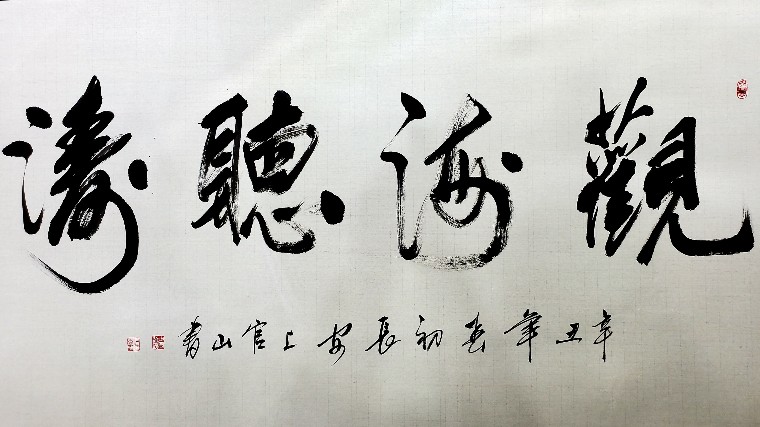 觀海聽濤
辛丑年春初長安上官山書